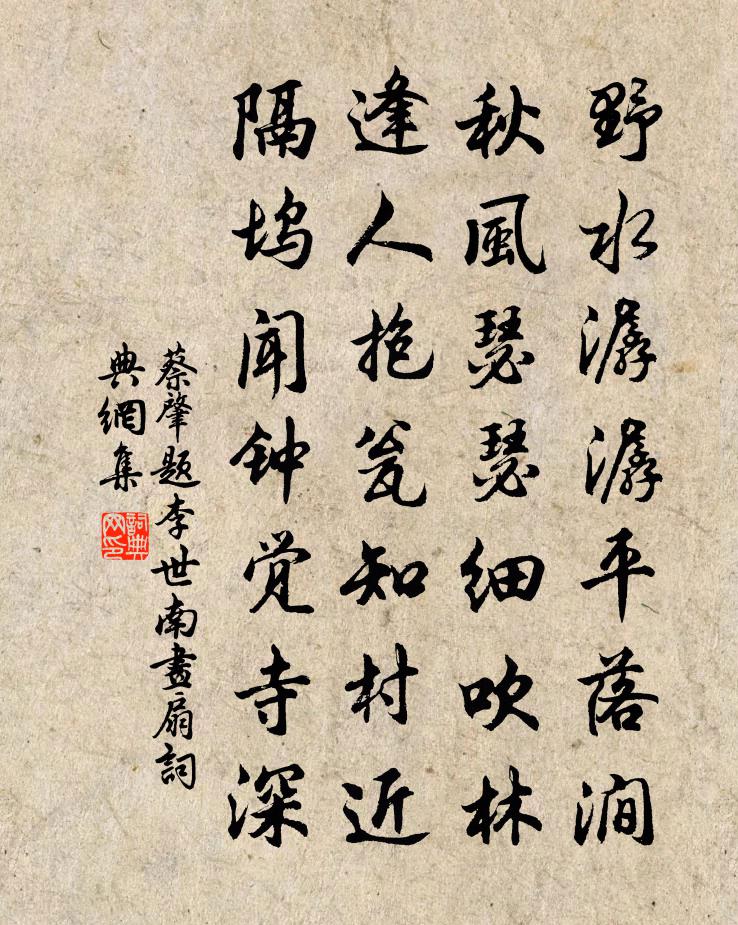 野水潺潺平落澗
秋風瑟瑟细吹林
逢人抱瓮知村近
隔坞闻钟觉寺深
蔡肇题李世南畫扇詞
典網集
詞典网印